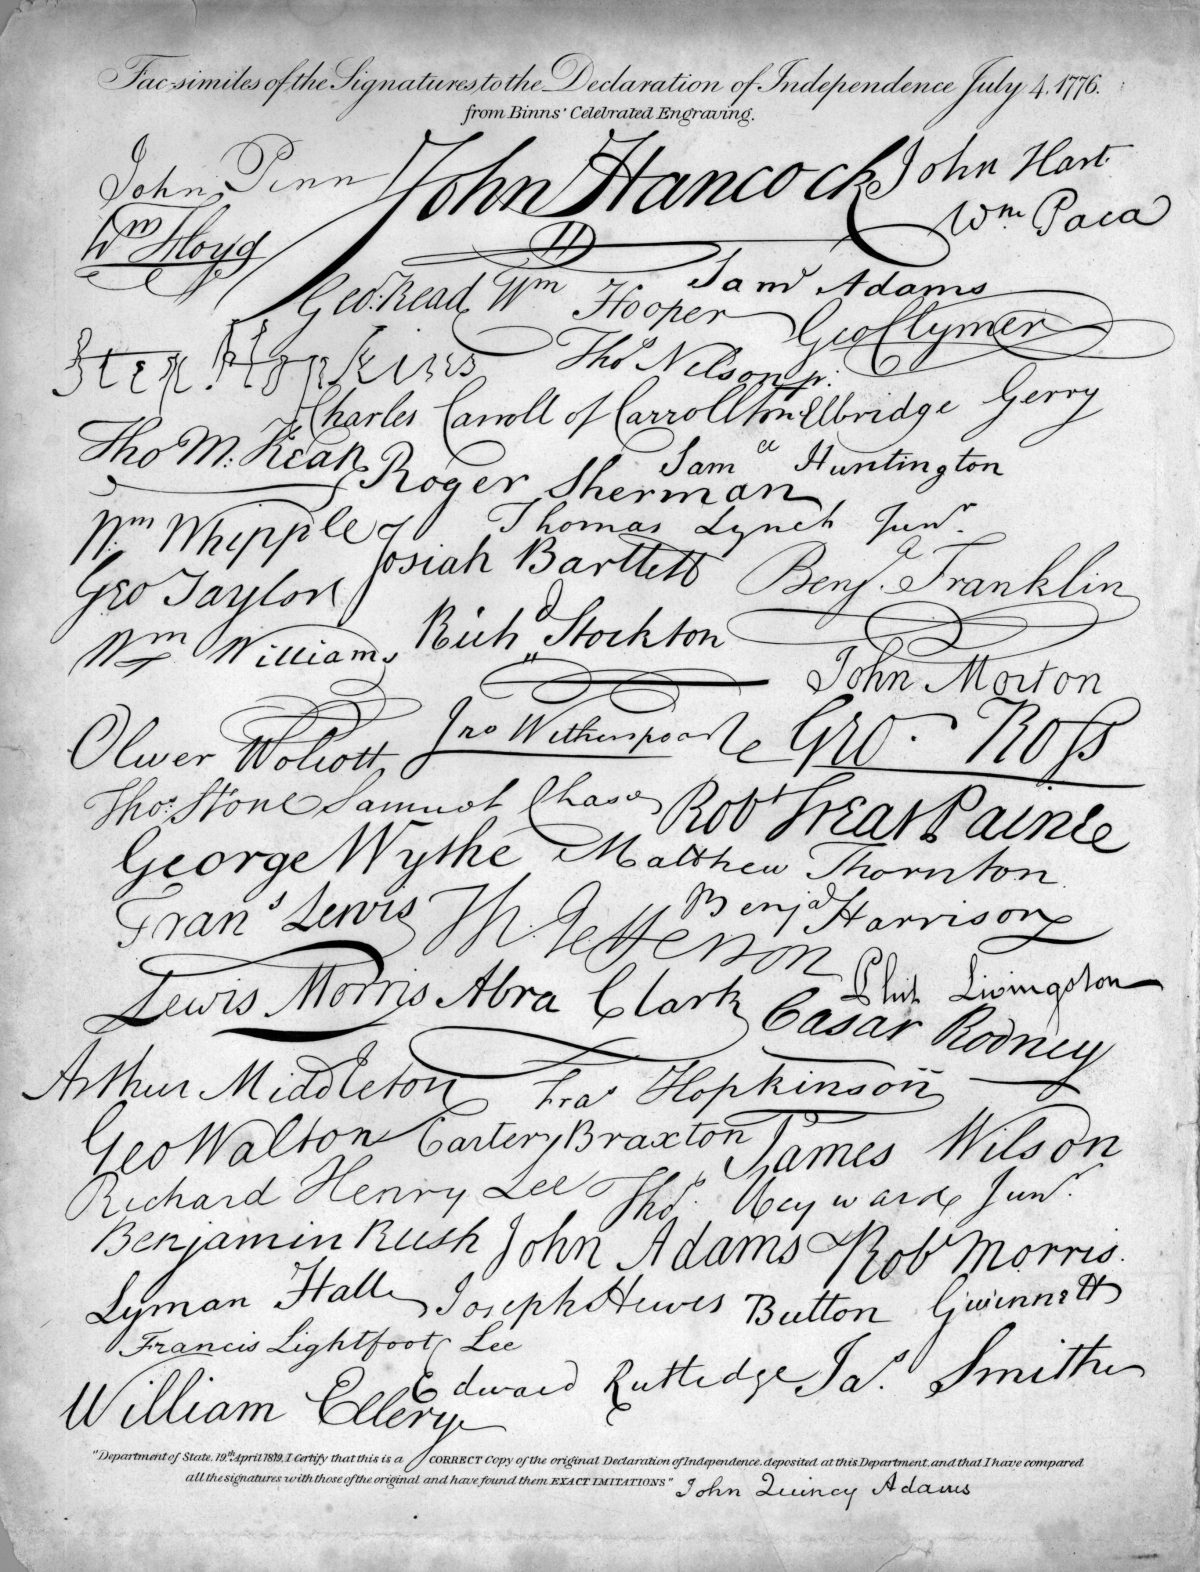 Fac-similes of the Signatures to the Declaration of Independence July 4. 1776.
from Binns' Celebrated Engraving.
John Penn John Hancock John Hart
Wm Floyd Wm. Paca
Geo. Read Wm Hooper Saml Adams
Geo Clymer
Step. Hopkins Thos Nelson jr.
Charles Carroll of Carrollton Elbridge Gerry
Tho M: Kean Roger Sherman Samel Huntington
Wm Whipple Thomas Lynch Junr.
Josiah Bartlett Benja. Franklin
Geo Taylor
Wm Williams Richd Stockton
John Morton
Oliver Wolcott Jno Witherspoon Geo. Ross
Thos. Stone Samuel Chase Robt Treat Paine
George Wythe Matthew Thornton
Frans Lewis Th. Jefferson Benja Harrison
Lewis Morris Abra Clark Phil. Livingston
Cæsar Rodney
Arthur Middleton Fras Hopkinson
Geo Walton Carter Braxton James Wilson
Richard Henry Lee Thos. Heyward Junr.
Benjamin Rush John Adams Robt Morris.
Lyman Hall Joseph Hewes Button Gwinnett
Francis Lightfoot Lee
William Ellery Edward Rutledge Jas. Smith
"Department of State, 19th April 1819. I Certify that this is a CORRECT Copy of the original Declaration of Independence, deposited at this Department, and that I have compared
all the signatures with those of the original and have found them EXACT IMITATIONS" John Quincy Adams